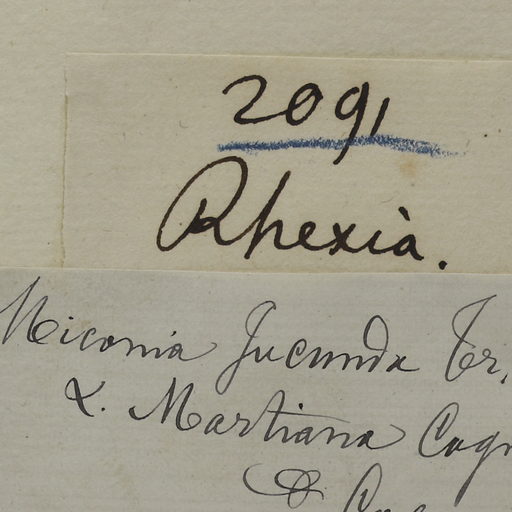 2091
Rhexia.
Miconia Jucunda Tr.
α. Martiana Cogn